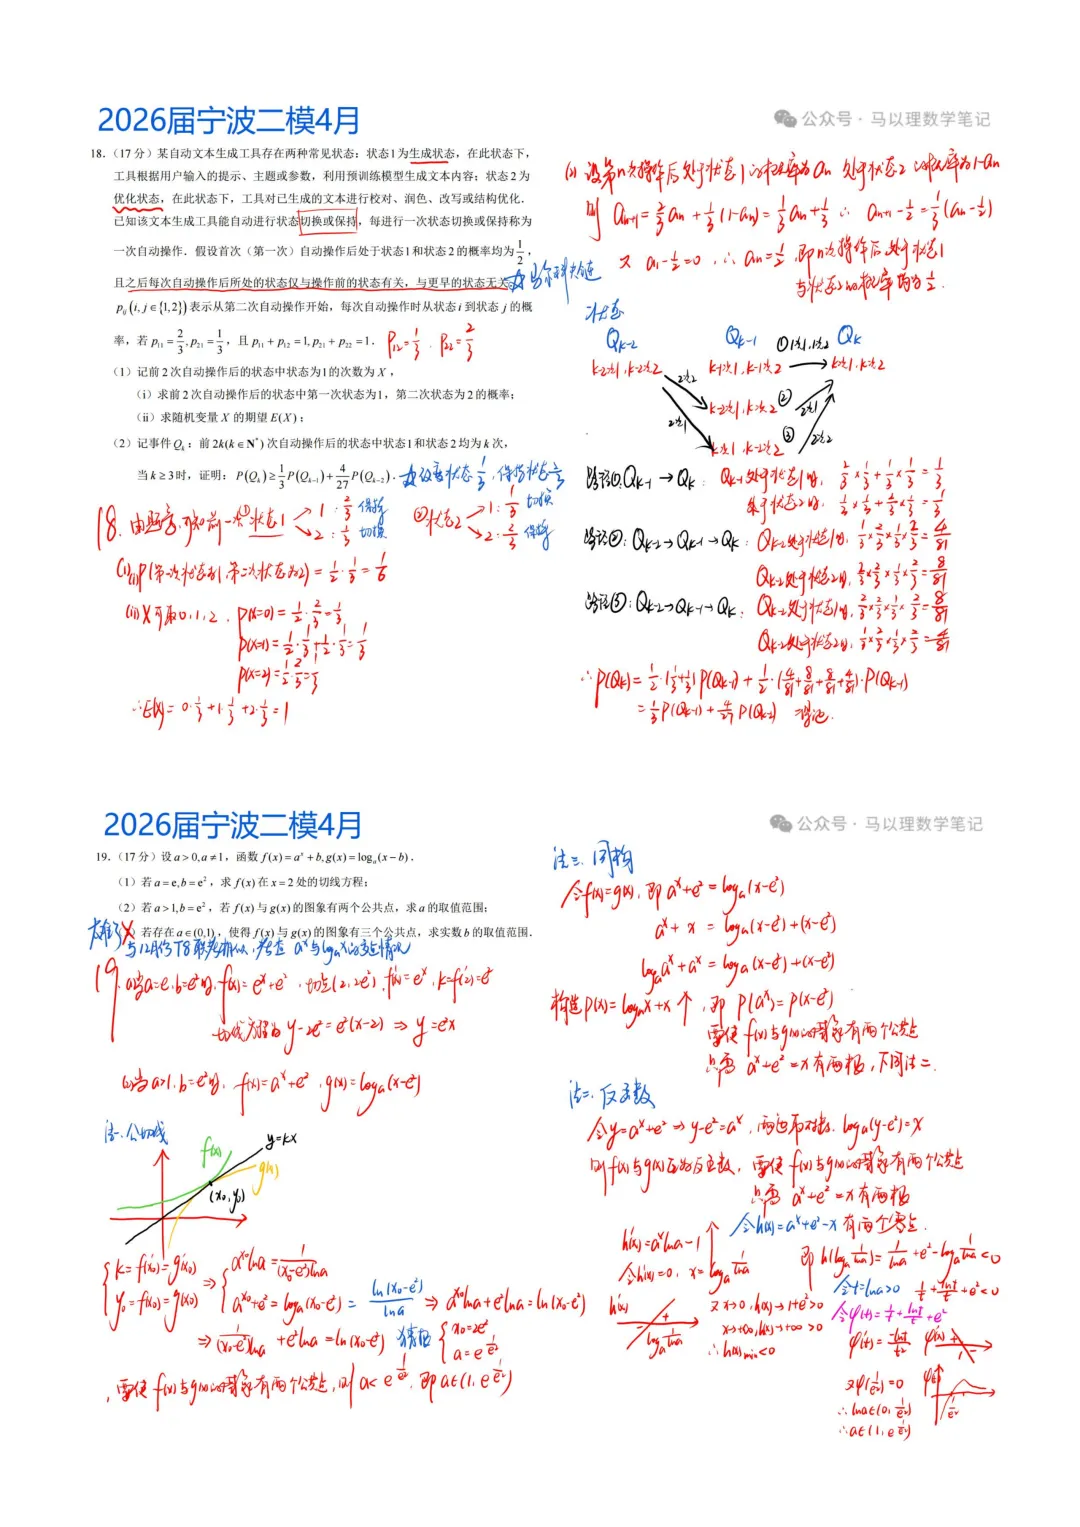 2026届宁波二模4月
公众号 · 马以理数学笔记
18.（17 分）某自动文本生成工具存在两种常见状态：状态1为生成状态，在此状态下，
工具根据用户输入的提示、主题或参数，利用预训练模型生成文本内容；状态2为
优化状态，在此状态下，工具对已生成的文本进行校对、润色、改写或结构优化．
已知该文本生成工具能自动进行状态切换或保持，每进行一次状态切换或保持称为
一次自动操作．假设首次（第一次）自动操作后处于状态1和状态2的概率均为 1/2，
且之后每次自动操作后所处的状态仅与操作前的状态有关，与更早的状态无关．
p_ij (i, j∈{1,2}) 表示从第二次自动操作开始，每次自动操作时从状态 i 到状态 j 的概
率，若 p₁₁ = 2/3, p₂₁ = 1/3，且 p₁₁ + p₁₂ = 1, p₂₁ + p₂₂ = 1．
P₁₂=1/3 . P₂₂=2/3
（1）记前2次自动操作后的状态中状态为1的次数为 X，
（ⅰ）求前2次自动操作后的状态中第一次状态为1，第二次状态为2的概率；
（ⅱ）求随机变量 X 的期望 E(X)；
（2）记事件 Q_k：前 2k(k∈N*) 次自动操作后的状态中状态1和状态2均为 k 次，
当 k ≥ 3时，证明：P(Q_k) ≥ 1/3 P(Q_{k-1}) + 4/27 P(Q_{k-2})．
改变状态 1/3，保持状态 2/3
18. 由题意，可知前一次①状态1 1：2/3 保持 2：1/3 切换 ②状态2 1：1/3 切换 2：2/3 保持
(1)(i) P(第一次状态为1，第二次状态为2) = 1/2·1/3 = 1/6
(ii) X可取0,1,2 . P(X=0) = 1/2·2/3=1/3
P(X=1) = 1/2·1/3+1/2·1/3=1/3
P(X=2) = 1/2·2/3=1/3
∴E(X) = 0·1/3+1·1/3+2·1/3=1
(2) 设第n次操作后处于状态1的概率为an 处于状态2的概率为1-an
则 a_{n+1} = 2/3 an + 1/3(1-an) = 1/3 an + 1/3 ∴ a_{n+1} - 1/2 = 1/3(an - 1/2)
又 a₁ - 1/2 = 0, ∴ an = 1/2, 即n次操作后处于状态1
与状态2的概率均为 1/2.
状态
Q_{k-2} Q_{k-1} ①1次1,1次2 Q_k
k-2次1, k-2次2 k-1次1, k-1次2 k次1, k次2
2次2 k-2次1, k次2 ② 2次1
2次1 k次1, k-2次2 ③ 2次2
路径①: Q_{k-1} → Q_k : Q_{k-1}处于状态1时, 2/3×1/3+1/3×1/3 = 1/3
处于状态2时,
路径②: Q_{k-2} → Q_{k-1} → Q_k : Q_{k-2}处于状态1时, 1/3×2/3×1/3×2/3 = 4/81
Q_{k-2}处于状态2时, 2/3×2/3×1/3×2/3 = 8/81
路径③: Q_{k-2} → Q_{k-1} → Q_k, Q_{k-2}处于状态1时, 2/3×2/3×1/3×2/3 = 8/81
Q_{k-2}处于状态2时, 1/3×2/3×1/3×2/3 = 4/81
∴ P(Q_k) = 1/2·(1/3+1/3) P(Q_{k-1}) + 1/2·(4/81+8/81+8/81+4/81)·P(Q_{k-2})
= 1/3 P(Q_{k-1}) + 4/27 P(Q_{k-2}) 得证.
2026届宁波二模4月
公众号 · 马以理数学笔记
19.（17 分）设 a > 0, a ≠ 1，函数 f(x) = aˣ + b, g(x) = logₐ(x − b)．
（1）若 a = e, b = e²，求 f(x) 在 x = 2 处的切线方程；
（2）若 a > 1, b = e²，若 f(x) 与 g(x) 的图象有两个公共点，求 a 的取值范围；
若存在 a∈(0,1)，使得 f(x) 与 g(x) 的图象有三个公共点，求实数 b 的取值范围．
太难了
与12月份T8联考相似，考查 aˣ与logₐx的交点情况
19. (1)当a=e, b=e²时, f(x)=eˣ+e² , 切点(2, 2e²) , f'(x)=eˣ , k=f'(2)=e²
切线方程为 y-2e²=e²(x-2) ⇒ y=e²x
(2)当a>1, b=e²时, f(x)=aˣ+e² , g(x)=logₐ(x-e²)
法一. 公切线
f(x) y=kx g(x) (x₀, y₀)
k=f'(x₀)=g'(x₀) ⇒ a^{x₀}lna = 1/((x₀-e²)lna)
y₀=f(x₀)=g(x₀) a^{x₀}+e²=logₐ(x₀-e²) = ln(x₀-e²)/lna ⇒ a^{x₀}lna+e²lna=ln(x₀-e²)
⇒ 1/((x₀-e²)lna) + e²lna = ln(x₀-e²) 猜根 x₀=2e² a=e^{1/e²}
需使 f(x)与g(x)的图象有两个公共点, 则 a<e^{1/e²}, 即 a∈(1, e^{1/e²})
法三. 同构
令f(x)=g(x), 即 aˣ+e²=logₐ(x-e²)
aˣ+x = logₐ(x-e²)+(x-e²)
logₐaˣ+aˣ = logₐ(x-e²)+(x-e²)
构造 p(x)=logₐx+x ↑ , 即 p(aˣ)=p(x-e²)
需使 f(x)与g(x)的图象有两个公共点
只需 aˣ+e²=x有两根, 下同法二.
法二. 反函数
令y=aˣ+e² ⇒ y-e²=aˣ, 两边取对数. logₐ(y-e²)=x
则f(x)与g(x)互为反函数, 需使 f(x)与g(x)的图象有两个公共点
只需 aˣ+e²=x有两根
令h(x)=aˣ+e²-x 有两个零点.
h'(x)=aˣlna-1
令h'(x)=0, x=logₐ 1/lna
即 h(logₐ 1/lna)= 1/lna +e²-logₐ 1/lna <0
h'(x) logₐ 1/lna
又x→0, h(x)→1+e²>0
x→+∞, h(x)→+∞ >0
∴ h(x)min<0
令t=lna>0 1/t + lnt/t + e²<0
令φ(t)= 1/t + lnt/t + e²
φ'(t)= -lnt/t² φ'(t)
又φ(1/e²)=0 φ(t) 1/e²
∴ lna∈(0, 1/e²)
∴a∈(1, e^{1/e²})